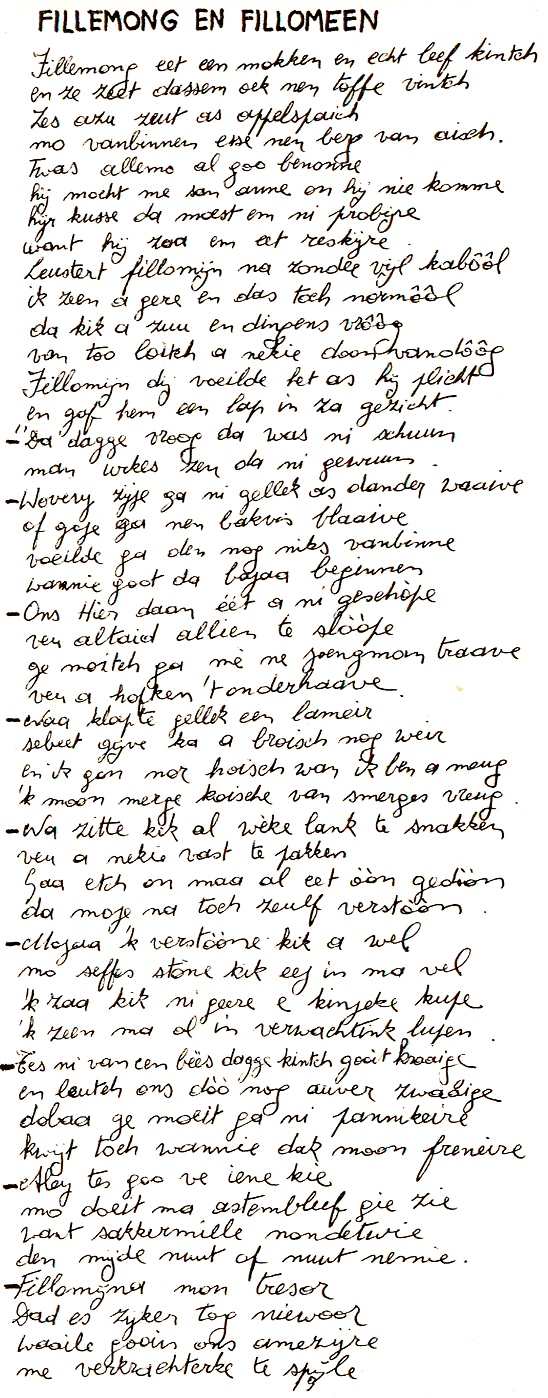 FILLEMONG EN FILLOMEEN
Fillemong eet een mokken en echt leef kintch
en ze zeet dassem oek nen toffe vintch
Zes azu zeut as appelspaich
mo vanbinnen esse nen berg van aisch.
Twas allemo al goo benonne
hij mocht me san anne on hij nie komme
hijr kusse da moest em ni probijre
want hij zoa em eet reskijre
Leustert fillomijn na zondee vijl kabôôl
ik zeen a gere en das toch normôôl
da kik a zuu en dingens vrôôg
van too loitch a nekie doon vandôôg
Fillomijn dij voeilde het as hij plicht
en gaf hem een lap in za gezicht.
-"Da dagge vroog da was ni schuun
man wekes zen da ni gewuun.
-Wovery zijje ga ni gellek as dander waaive
of goje ga nen bakvis blaaive
voeilde ga den nog niks vanbinne
wannie goot da bajaa beginnen
-Ons Hier daan éét a ni geschôpe
veu altaid allien te slôôpe
ge moitch ga mè ne joengman traave
veu a hofken 't onderhaave.
-Naa klapte gellek een lameir
sebeet gijve ka a broisch nog weir
en ik gon nor hoisch wan ik ben a meug
'k moon merge koische van smerges vreug.
-Wa zitte kik al wèke lank te snakken
veu a nekie vast te pakken
Gaa etch on maa al eet ôôn gedôôn
da moje na toch zeulf verstôôn.
-Mojaa 'k verstôône kik a wel
mo seffes stône kik eej in ma vel
'k zaa kik ni geere e kinjeke kupe
'k zeen ma al in verwachtink lupen.
-Tes ni van een bëës dagge kintch goit kraaige
en leutch ons dôô nog auver zwaaige
dobaa ge moeit ga ni pannikeire
kwijt toch wannie dak moon freneire
-Alley tes goo ve iene kie
mo doeit ma astembleef gie zie
want sakkermille nondetwie
den mijde nuut of nuut nemie.
-Fillomijna mon tresor
Dad es zijker top niewoor
waaile gooin ons amezijre
me verkrachterke te spijle